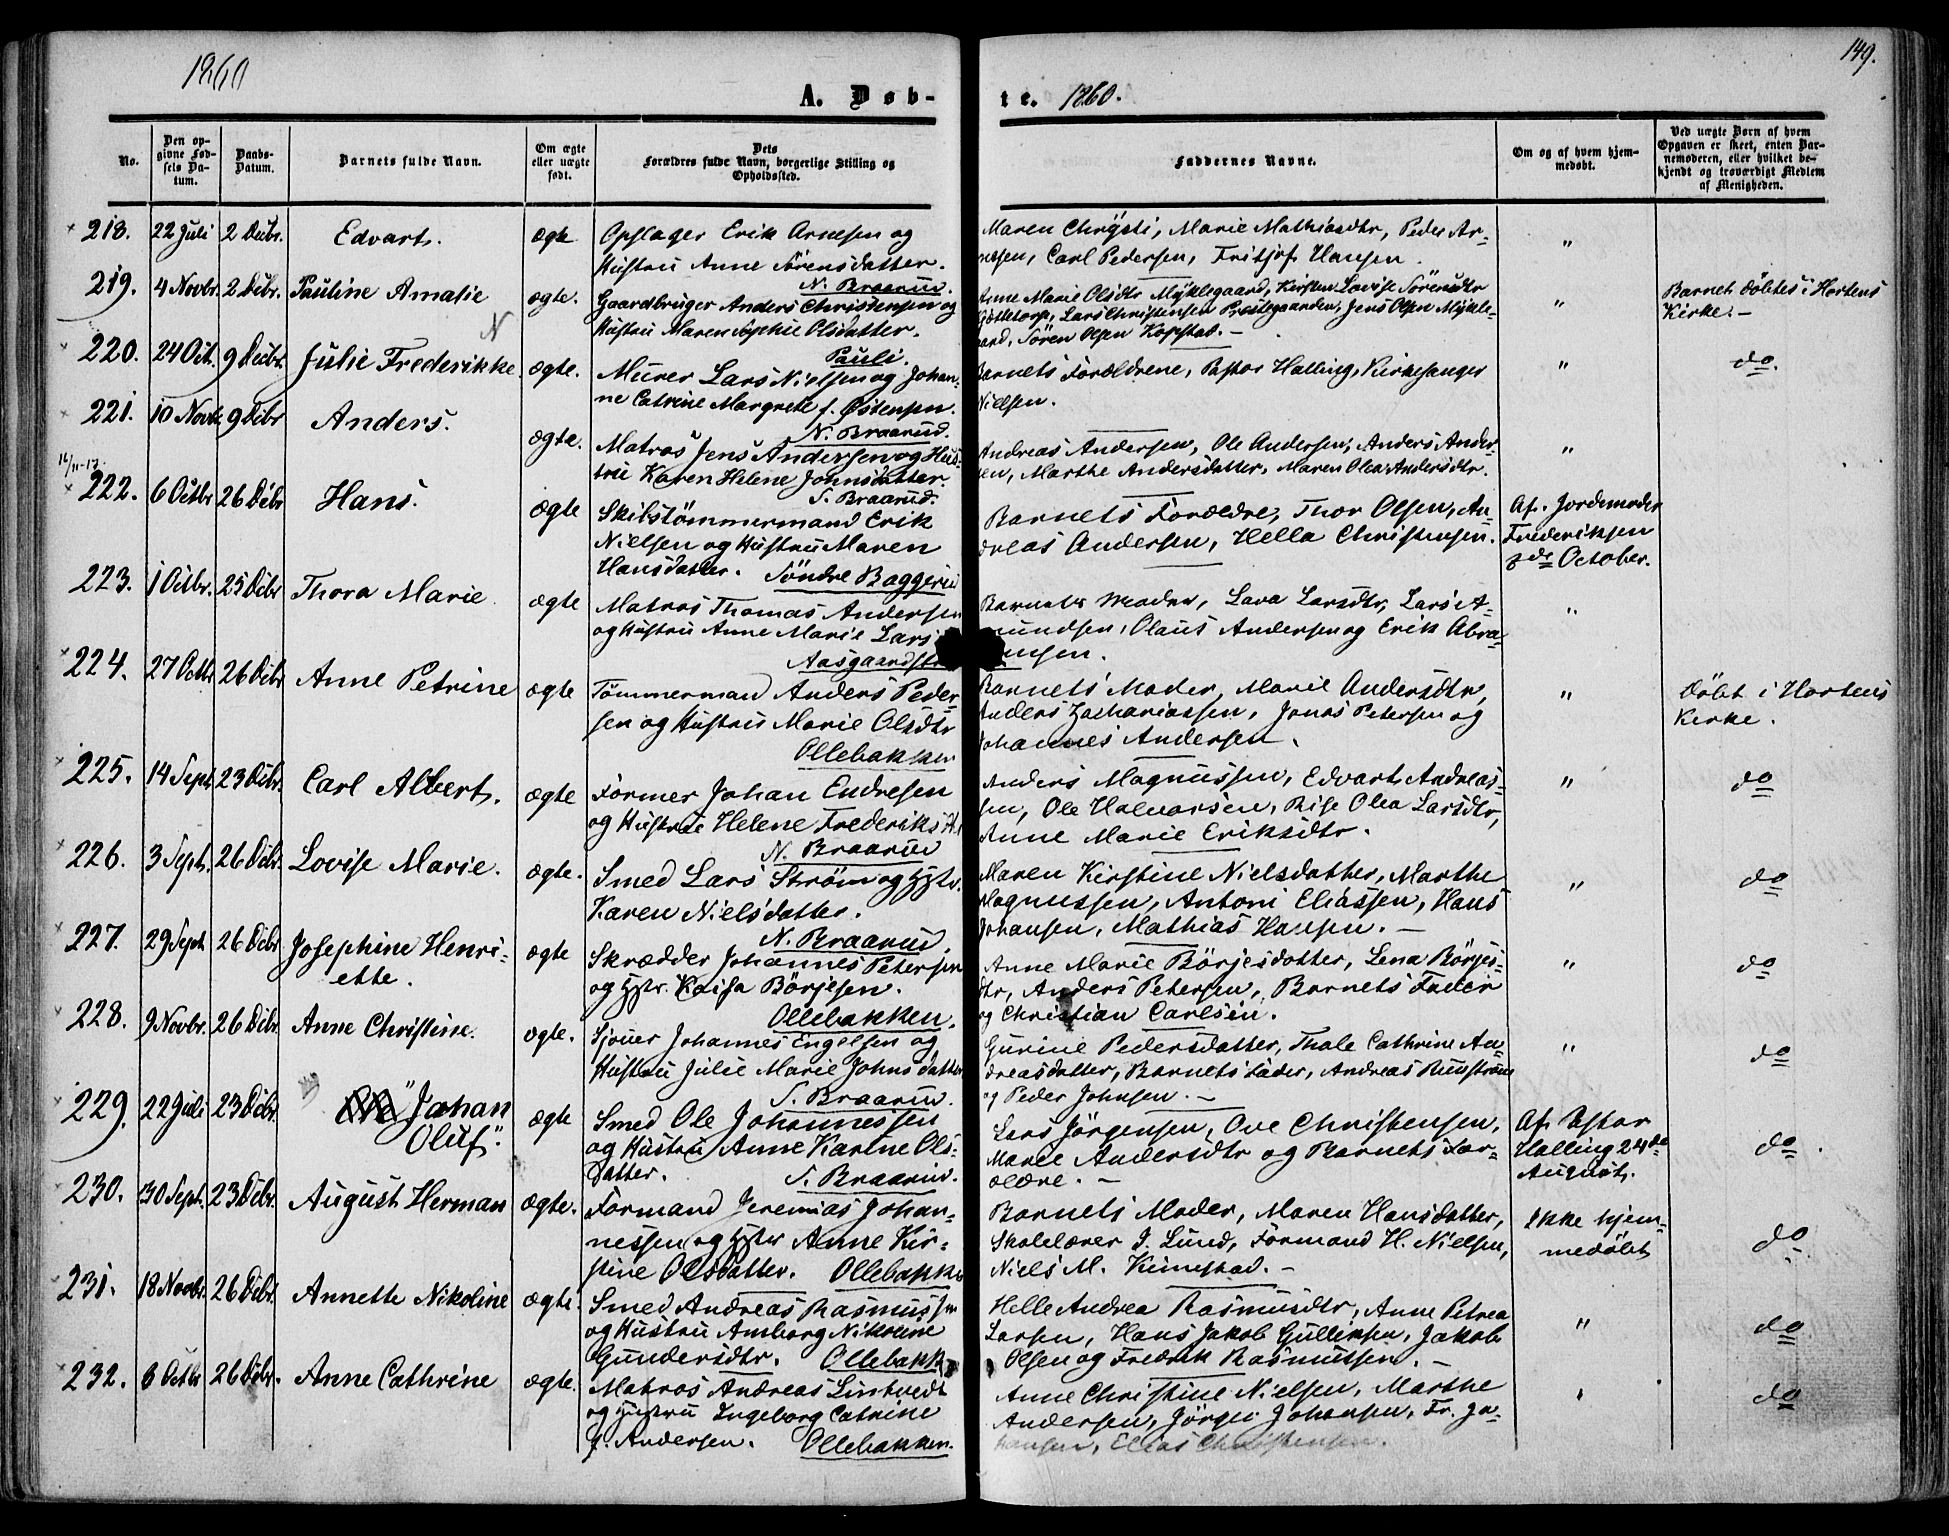 1860
149.
A. Døb-
te. 1860.
No.
Den op-
givne Fød-
sels Da-
tum.
Daabs-
Datum.
Barnets fulde Navn.
Om ægte
eller uægte
født.
Dets
Forældres fulde Navn, borgerlige Stilling og
Opholdssted.
Faddernes Navne.
Om og af hvem hjem-
medøbt.
Ved uægte Børn af hvem
Opgaven er skeet, enten Bar-
nemoderen, eller hvilket be-
kjendt og troværdigt Medlem
af Menigheden.
218. 22 Juli 2 Debr. Edvart. ægte Opsager Erik Arnesen og
Hustru Anne Sørensdatter.
N. Braarud.
Maren Chrysti, Marie Mathiasdtr, Peder Ar-
nesen, Carl Pedersen, Fritjof Hansen.
"
219. 4 Novbr. 2 Debr. Pauline Amalie ægte. Gaardbruger Anders Christensen og
Hustru Maren Sophie Olsdatter.
Pauli.
Anne Marie Olsdtr Myklegaard, Kirsten Lovise Sørensdtr
Gøttetorp, Lars Christensen Prestegaarden, Jens Olsen Mykle-
gaard, Søren Olsen Kopstad. -
"
Barnet døbtes i Hortens
Kirke. -
N
220. 24 Oct. 9 Debr. Julie Frederikke. ægte. Murer Lars Nielsen og Johan-
ne Catrine Margrete f. Østensen.
N. Braarud.
Barnets Forældrene, Pastor Halling, Kirkesanger
Nielsen.
"
do.
221. 10 Novbr 9 Debr Anders. ægte. Matros Jens Andersen og Hus-
tru Karen Helene Johnsdatter.
S. Braarud.
Andreas Andersen, Ole Andersen, Anders Ander-
sen, Marthe Andersdatter, Maren Olea Andersdtr.
"
16/11-17
222. 6 Octbr 26 Debr Hans. ægte Skibstömmermand Erik
Nielsen og Hustru Maren
Hansdatter. Söndre Baggerud
Barnets Forældre, Thor Olsen, An-
dreas Andersen, Hella Christensen.
Af. Jordemoder
Frederiksen
3de October.
223. 1 Octbr. 25 Debr Thora Marie ægte Matros Thomas Andersen
og Hustru Anne Marie Lars
Aasgaardstr
Barnets Moder, Lava Larsdtr, Lars A-
mundsen, Olaus Andersen og Erik Abra-
hamsen.
"
224. 27 Octbr 26 Debr Anne Petrine ægte Tömmermand Anders Peder-
sen og Hustru Marie Olsdtr
Ollebakken
Barnets Moder, Marie Andersdtr,
Anders Zachariassen, Jonas Petersen og
Johannes Andersen.
"
døbt i Hortens
Kirke.
225. 14 Sept 23 Debr. Carl Albert. ægte Former Johan Endresen
og Hustrue Helene Frederiksd.
N. Braarud
Anders Magnussen, Edvart Andreas-
sen, Ole Halvorsen, Rise Olea Larsdtr,
Anne Marie Eriksdtr.
"
do
226. 3 Septr. 26 Debr. Lovise Marie. ægte. Smed Lars Ström og Hstr.
Karen Nielsdatter.
N. Braarud
Maren Kirstine Nielsdatter, Marthe
Magnussen, Antoni Eliassen, Hans
Johansen, Mathias Hansen. -
"
do
227. 29 Sept 26 Debr Josephine Henri-
ette. ægte Skrædder Johannes Petersen
og Hstr. Kaisa Börjesen.
Ollebakken.
Anne Marie Börjesdatter, Lena Börjes-
dtr, Anders Petersen, Barnets Fader
og Christian Carlsen.
"
do
228. 9 Novbr. 26 Debr. Anne Christine. ægte. Sjouer Johannes Engelsen og
Hustru Julie Marie Johnsdatter
S. Braarud.
Gurine Pedersdatter, Thale Cathrine An-
dreasdatter, Barnets Fader, Andreas Runström
og Peder Johnsen. -
"
do
229. 22 Juli 23 Debr. "Johan
Oluf". ægte Smed Ole Johannessen
og Hustru Anne Karine Ols-
datter. S. Braarud.
Lars Jörgensen, Ove Christensen,
Maree Andersdtr og Barnets For-
ældre. -
Af Pastor
Halling 24de
August.
do.
230. 30 Sept. 23 Debr. August Herman ægte. Formand Jeremias Johan-
nessen og Hstr Anne Kir-
stine Olsdatter. Ollebakken
Barnets Moder, Maren Hansdatter,
Skolelærer J. Lund, Formand H. Nielsen,
Niels M. Kimstad. -
Ikke hjem-
medöbt
do
231. 18 Novbr. 26 Debr. Annette Nikoline ægte. Smed Andreas Rasmussen
og Hustru Amborg Nikoline
Gundersdtr. Ollebakk
Helle Andrea Rasmusdtr, Anne Petrea
Larsen, Hans Jakob Gullixsen, Jakob
Olsen og Fredrik Rasmussen. -
"
do
232. 6 Octbr 26 Debr. Anne Cathrine ægte. Matros Andreas Lintvedt
og Hustru Ingeborg Catrine
f. Andersen. Ollebakken.
Anne Christine Nielsen, Marthe
Andersen, Jörgen Johansen, Fr. Jo-
hansen, Elias Christensen.
do